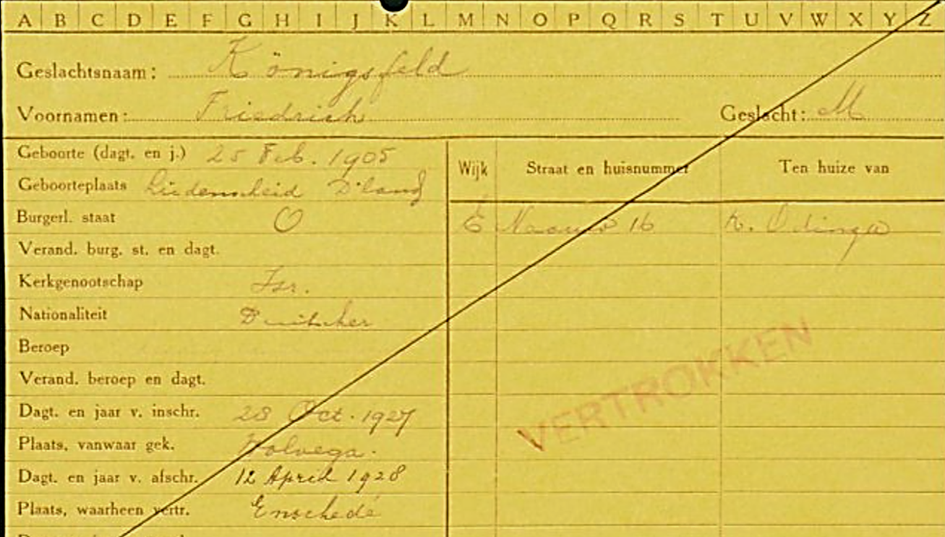 A B C D E F G H I J K L M N O P Q R S T U V W X Y Z
Geslachtsnaam: Königsfeld
Voornamen: Friedrich Geslacht: M
Geboorte (dagt. en j.) 25 Feb. 1905 Wijk Straat en huisnummer Ten huize van
Geboorteplaats Lüdenscheid D'land
Burgerl. staat O E 16 K. Odinga
Verand. burg. st. en dagt.
Kerkgenootschap Isr.
Nationaliteit Duitscher
Beroep
Verand. beroep en dagt.
VERTROKKEN
Dagt. en jaar v. inschr. 28 Oct. 1927
Plaats, vanwaar gek. Wolvega.
Dagt. en jaar v. afschr. 12 April 1928
Plaats, waarheen vertr. Enschedé